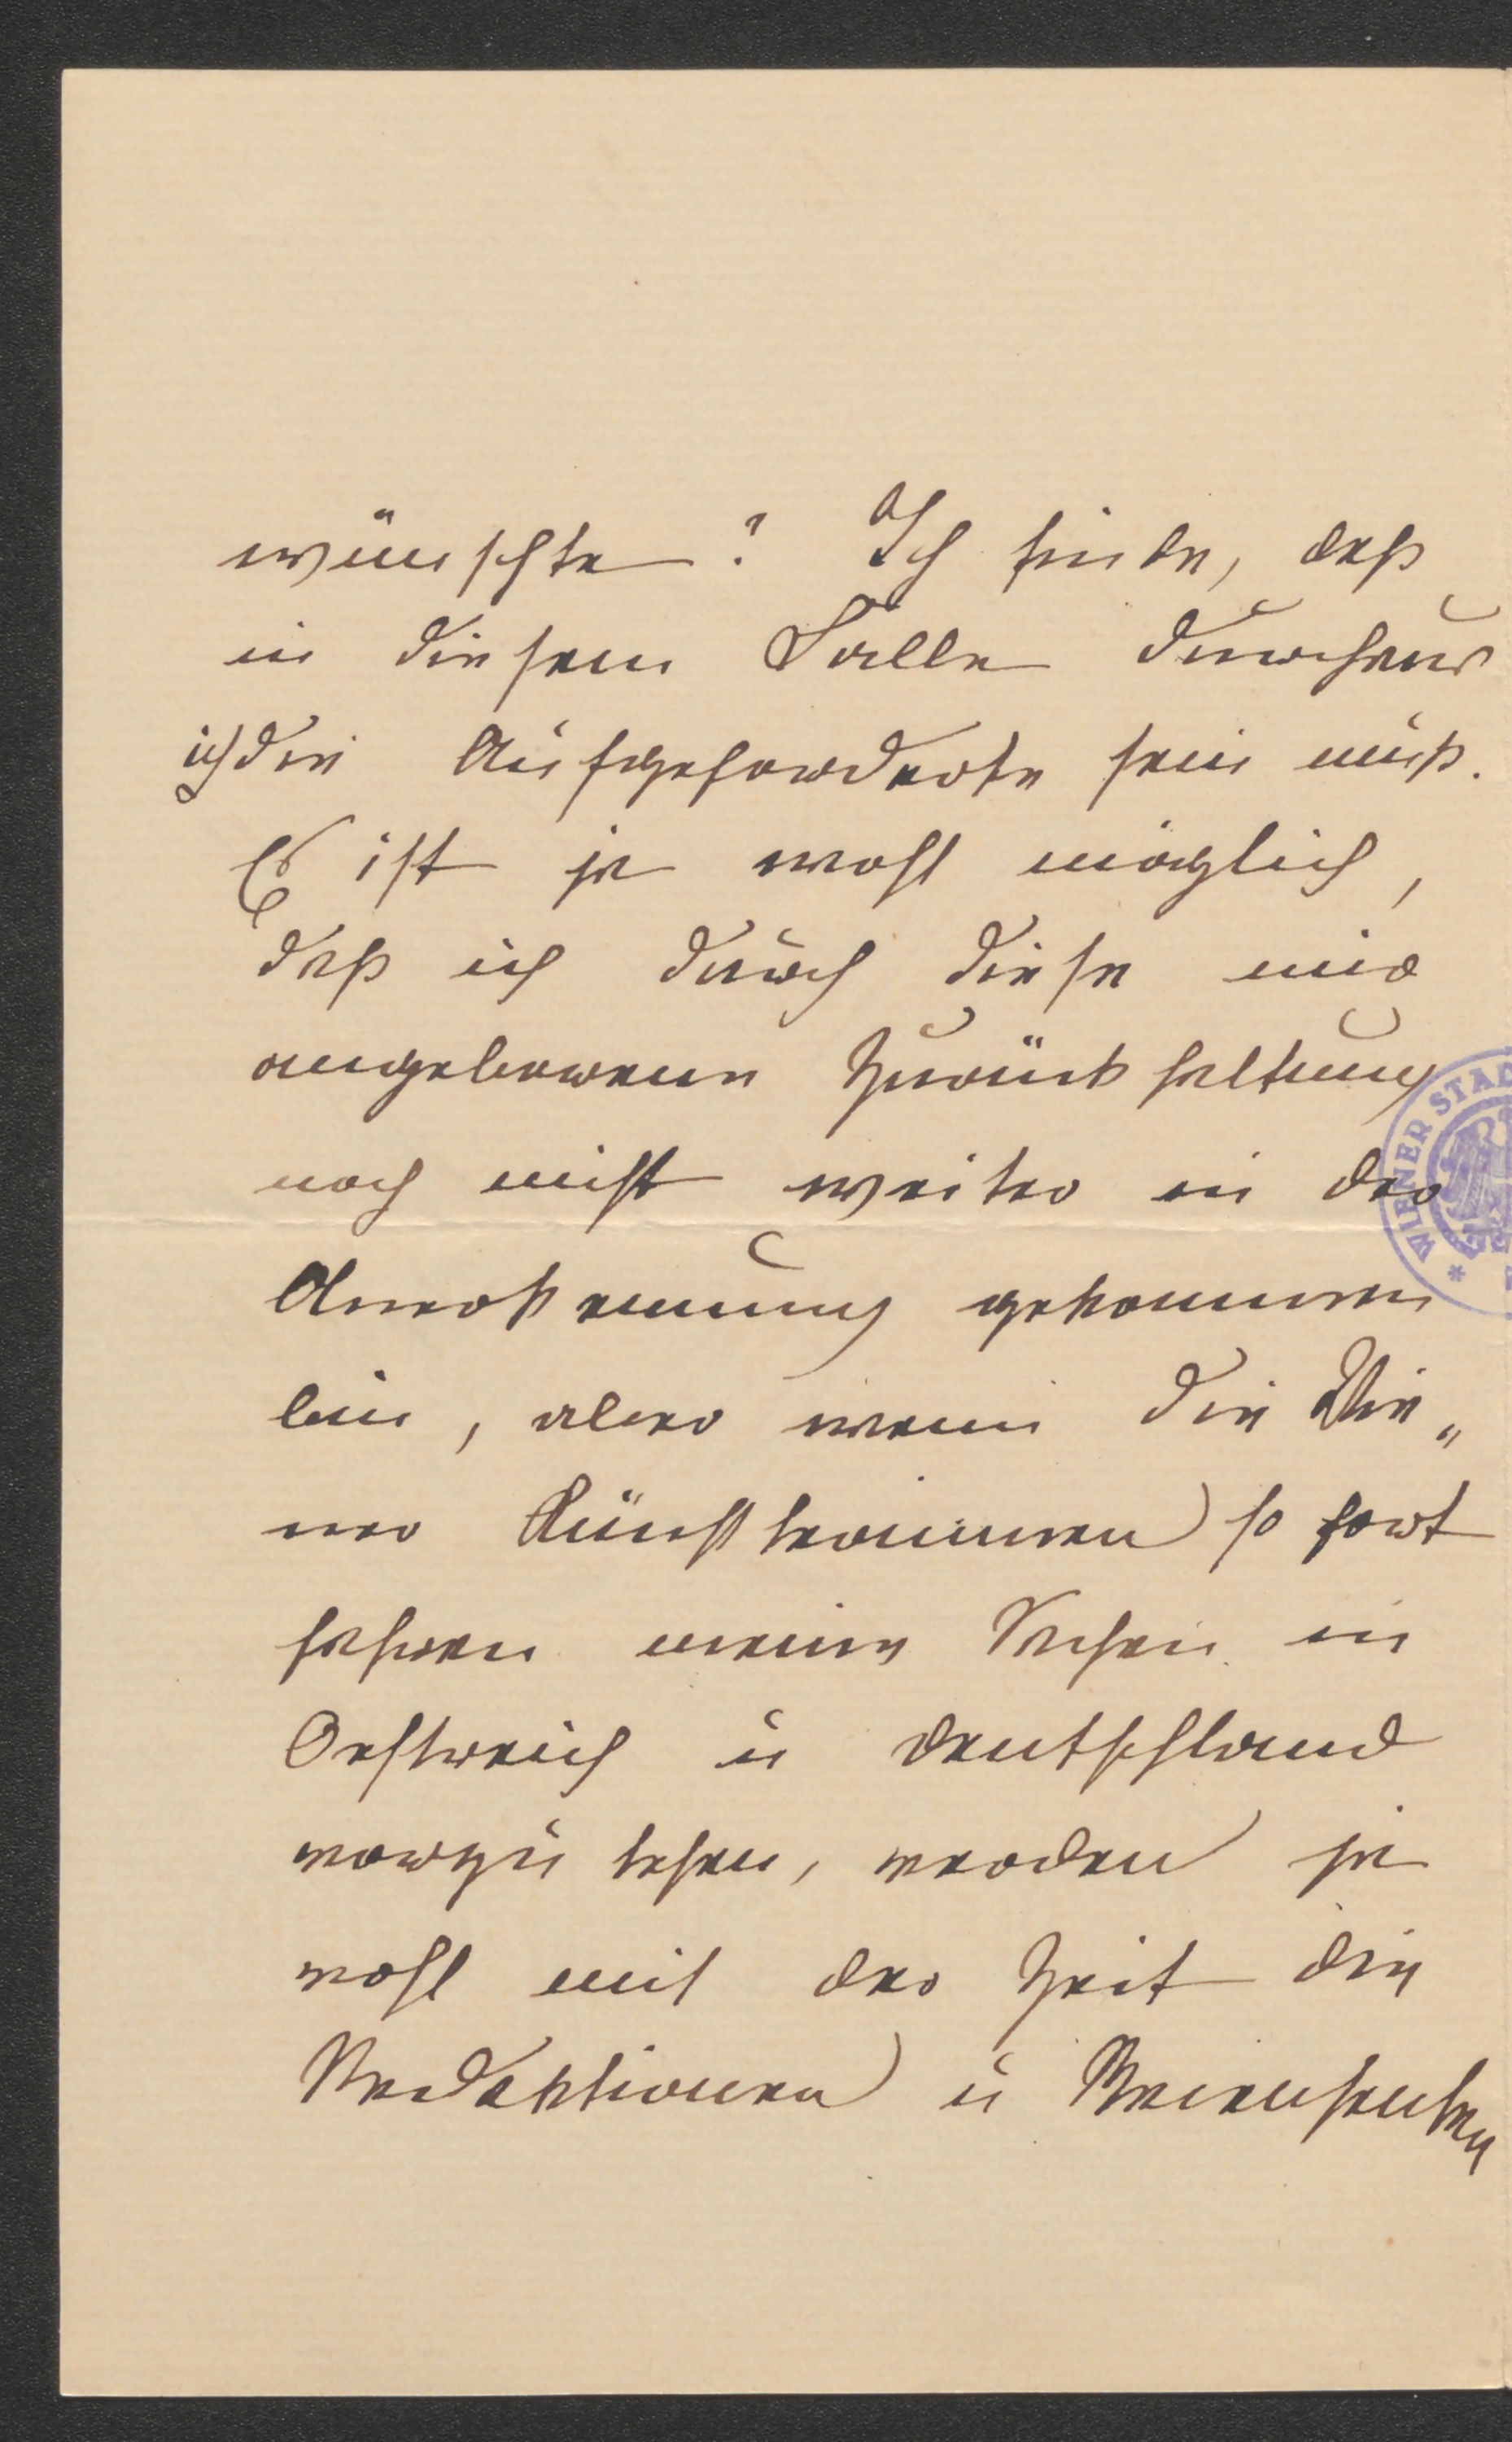 wünschte? Ich finde, daß
in diesem Falle durchaus
ich die Aufgeforderte sein muß.
Es ist ja wohl möglich,
daß ich durch diese mir
angeborenen Zurückhaltung
noch nicht weiter in der
Anerkennung gekommen
bin, aber wenn die Wie„
ner Künstlerinnen so fort
fahren meine Sachen in
Oestreich u Deutschland
vorzu
wohl mit der Zeit die
Redaktionen u Recensenten
WIENER STAD